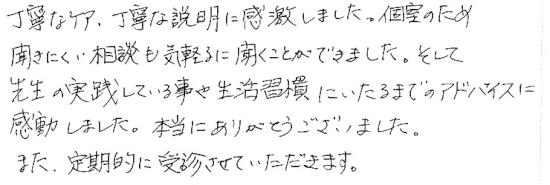 丁寧なケア、丁寧な説明に感激しました。個室のため
聞きにくい相談も気軽に聞くことができました。そして
先生の実践している事や生活習慣にいたるまでのアドバイスに
感動しました。本当にありがとうございました。
また、定期的に受診させていただきます。